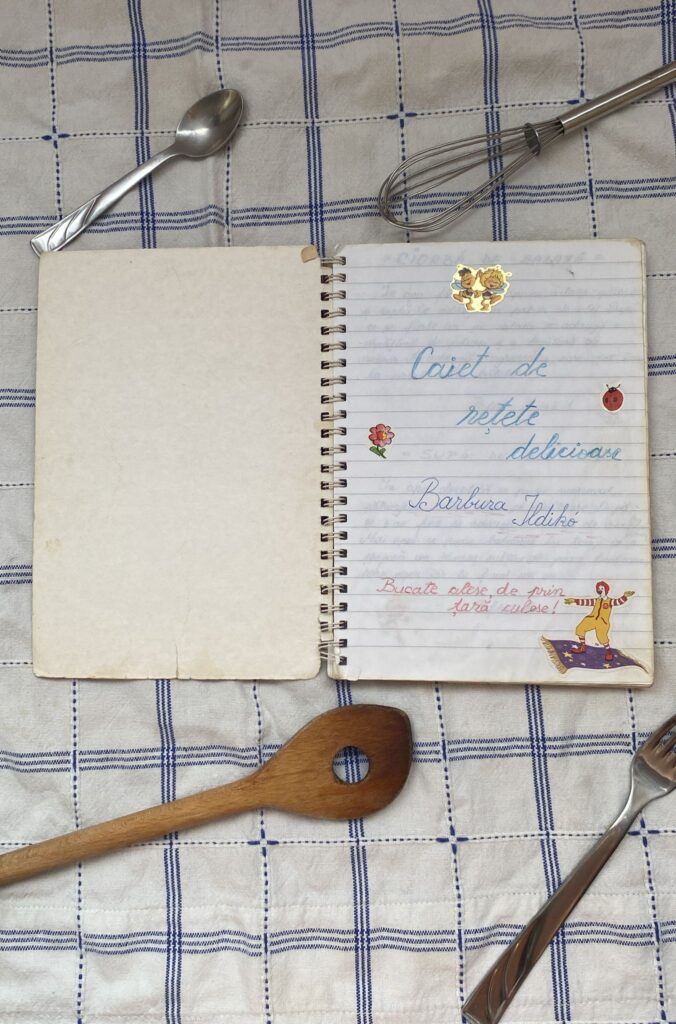 Caiet de
rețete
delicioase
Barbura Ildikó
Bucate alese, de prin
țară culese!